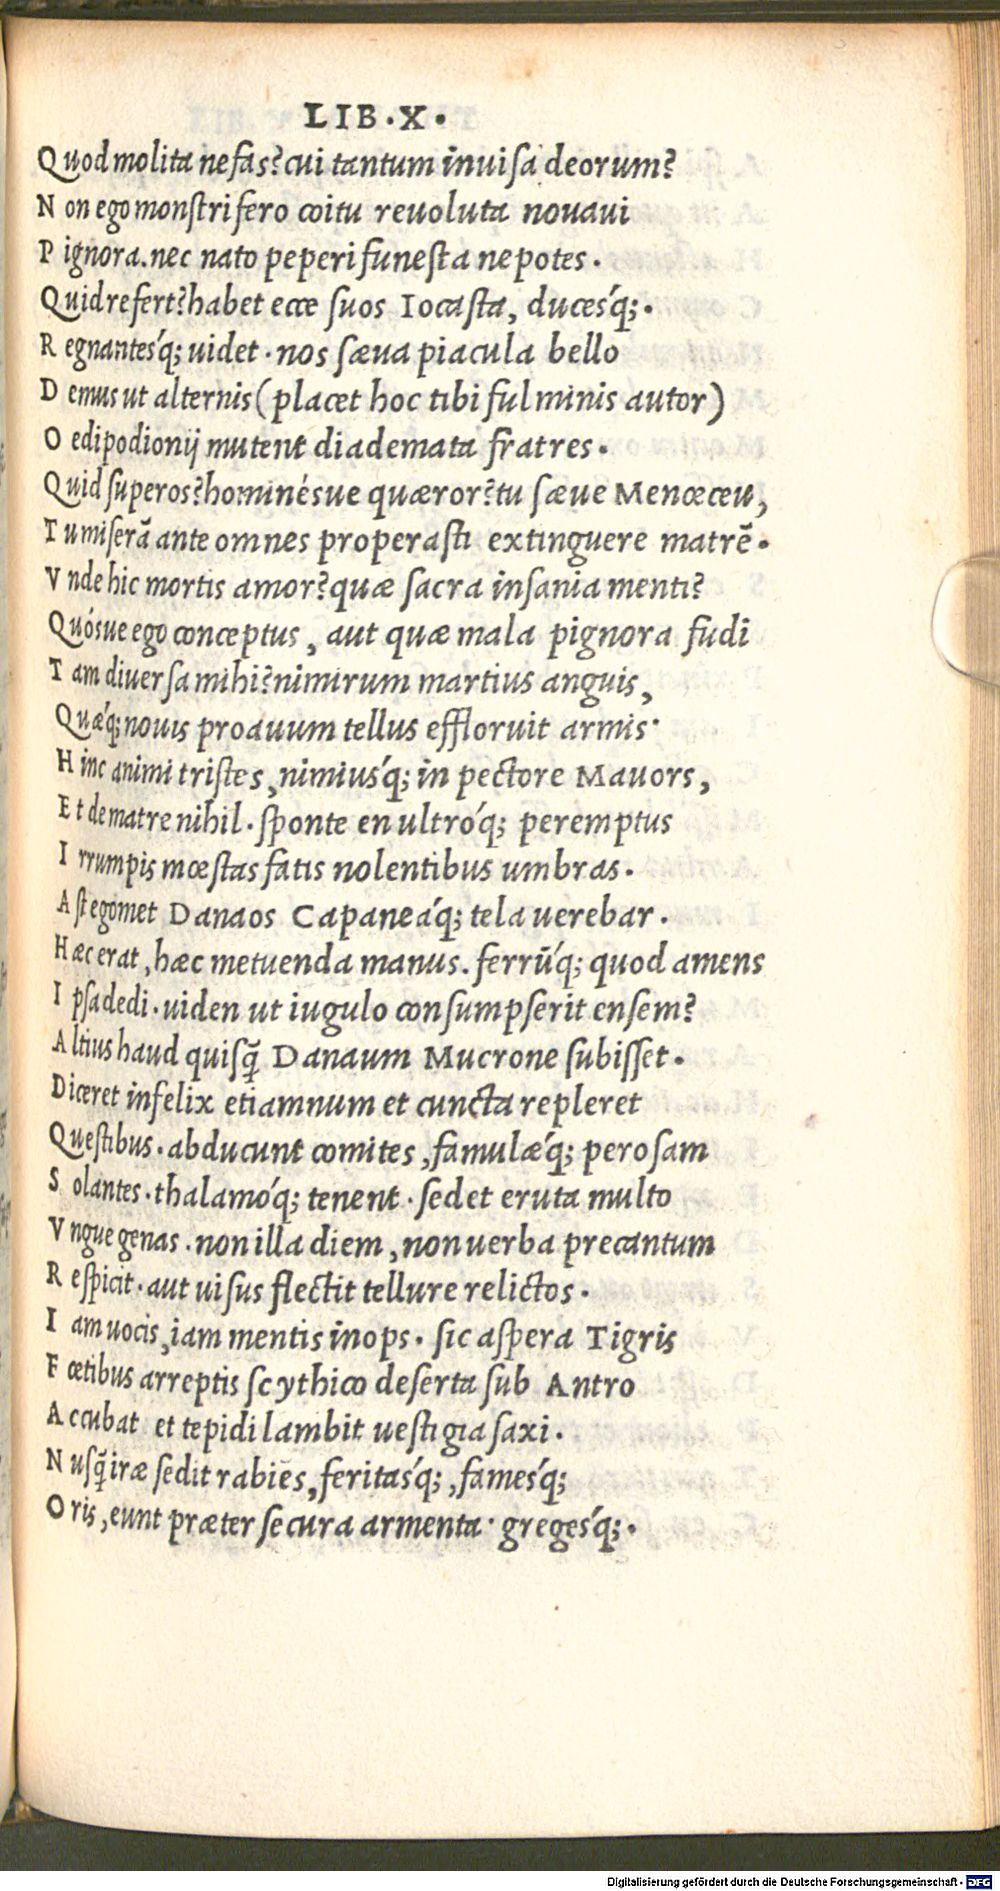 LIB·X·
Quod molita nefas? cui tantum inuisa deorum?
N on ego monstrifero coitu reuoluta nouaui
P ignora. nec nato peperi funesta nepotes.
Quid refert? habet ecce suos Iocasta, ducesq́;.
R egnantesq́; uidet. nos sæua piacula bello
D emus ut alternis (placet hoc tibi fulminis autor)
O edipodionij mutent diademata fratres.
Quid superos? hominésue quæror? tu sæue Menœceu,
T u miserā ante omnes properasti extinguere matrē.
V nde hic mortis amor? quæ sacra insania menti?
Quósue ego conceptus, aut quæ mala pignora fudi
T am diuersa mihi? nimirum martius anguis,
Quæq́; nouis proauum tellus effloruit armis·
H inc animi tristes, nimiusq́; in pectore Mauors,
E t de matre nihil. sponte en ultróq́; peremptus
I rrumpis mœstas fatis nolentibus umbras.
A st egomet Danaos Capaneáq́; tela uerebar.
Hæc erat, hæc metuenda manus. ferrūq́; quod amens
I psa dedi. uiden ut iugulo consumpserit ensem?
A ltius haud quisq̃ Danaum Mucrone subisset.
Diceret infelix etiamnum et cuncta repleret
Questibus. abducunt comites, famulæq́; perosam
S olantes. thalamóq́; tenent. sedet eruta multo
V ngue genas. non illa diem, non uerba precantum
R espicit. aut uisus flectit tellure relictos.
I am uocis, iam mentis inops. sic aspera Tigris
F œtibus arreptis scythico deserta sub Antro
A ccubat et tepidi lambit uestigia saxi.
N usq̃ iræ sedit rabies, feritasq́;, famesq́;
O ris, eunt præter secura armenta· gregesq́;.
Digitalisierung gefördert durch die Deutsche Forschungsgemeinschaft - DFG